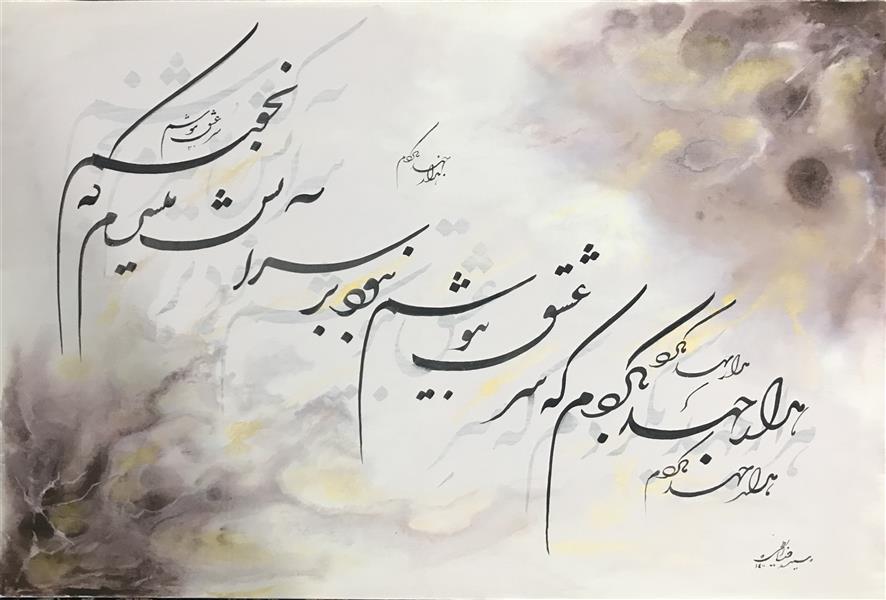 هزار جهد بکردم که سر عشق بپوشم
نبود بر سر آتش میسرم که نجوشم
سر عشق بپوشم
هزار جهد بکردم
هزار جهد بکردم